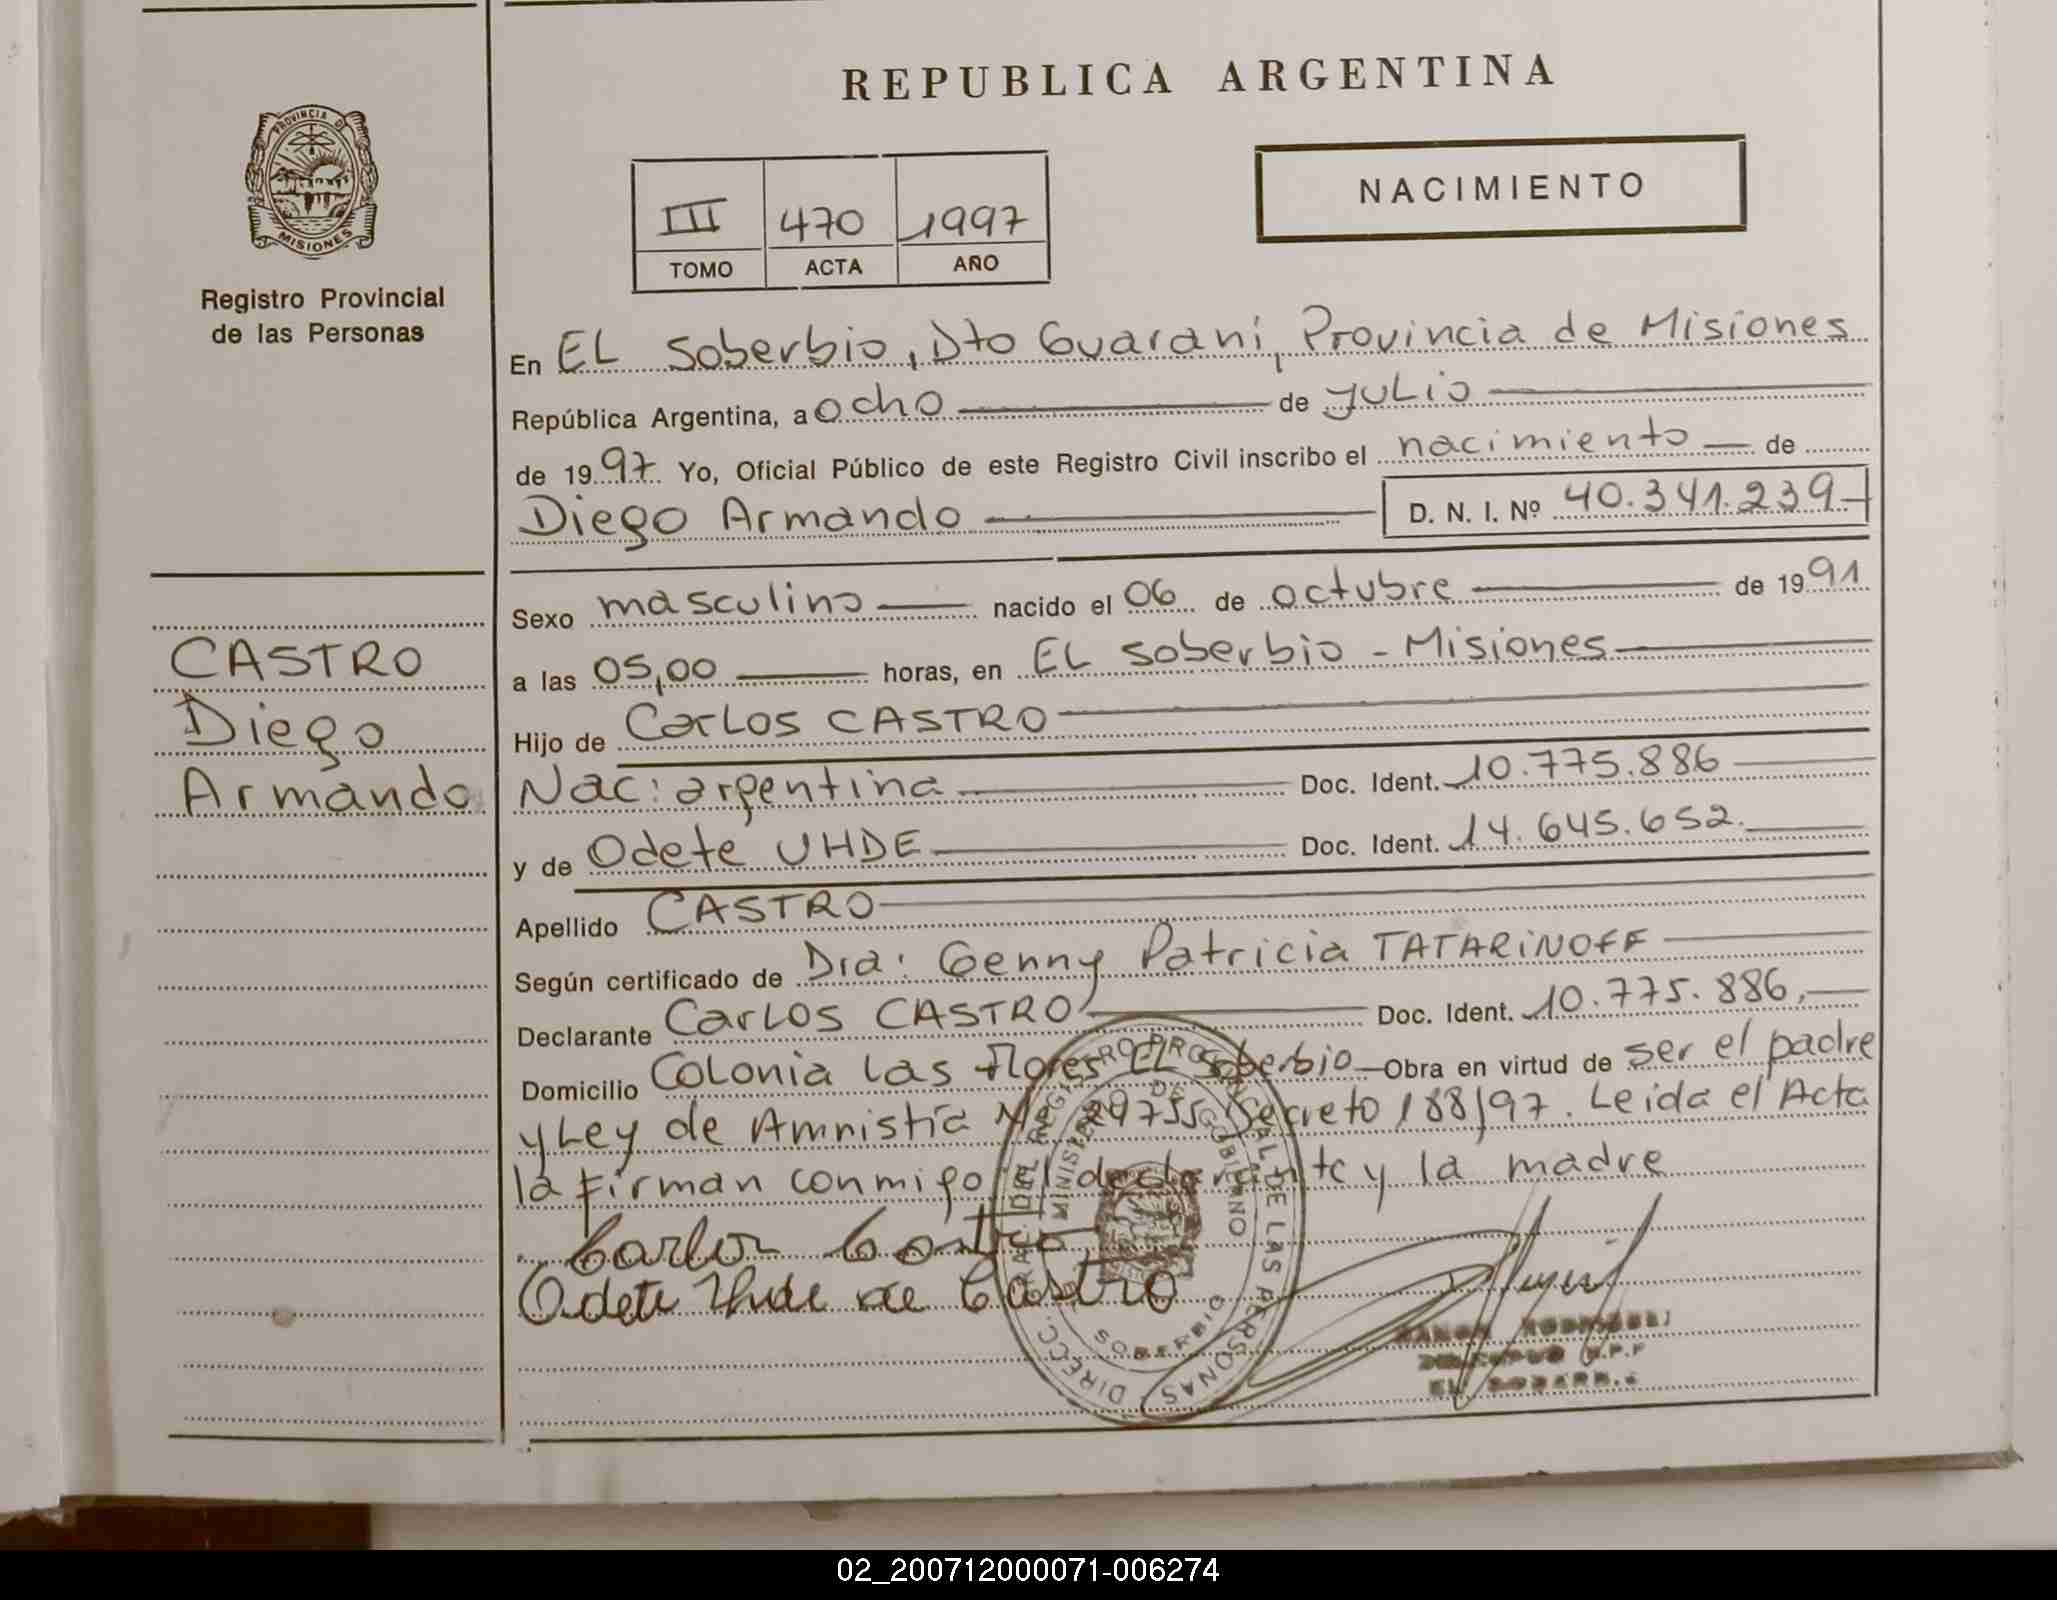 REPUBLICA ARGENTINA
NACIMIENTO
III 470 1997
TOMO ACTA AÑO
PROVINCIA DE MISIONES
Registro Provincial
de las Personas
En EL Soberbio, Dto Guaraní, Provincia de Misiones
República Argentina, a ocho de julio
de 1997 Yo, Oficial Público de este Registro Civil inscribo el nacimiento de
Diego Armando D. N. I. Nº 40.341.239
Sexo masculino nacido el 06 de octubre de 1991
a las 05,00 horas, en EL Soberbio - Misiones
Hijo de Carlos CASTRO
Nac: argentina Doc. Ident. 10.775.886
y de Odete UHDE Doc. Ident. 14.645.652.
Apellido CASTRO
Según certificado de Dra: Genny Patricia TATARINOFF
Declarante Carlos CASTRO Doc. Ident. 10.775.886,
Domicilio Colonia Las Flores EL Soberbio Obra en virtud de ser el padre
y Ley de Amnistía Nº 24755 Decreto 188/97. Leida el Acta
la firman conmigo el declarante y la madre
Carlos Castro
Odete Uhde de Castro
CASTRO
Diego
Armando
DIRECC. GRAL. DEL REGISTRO PROVINCIAL DE LAS PERSONAS
MINISTERIO DE GOBIERNO
SOBERBIO
02_200712000071-006274